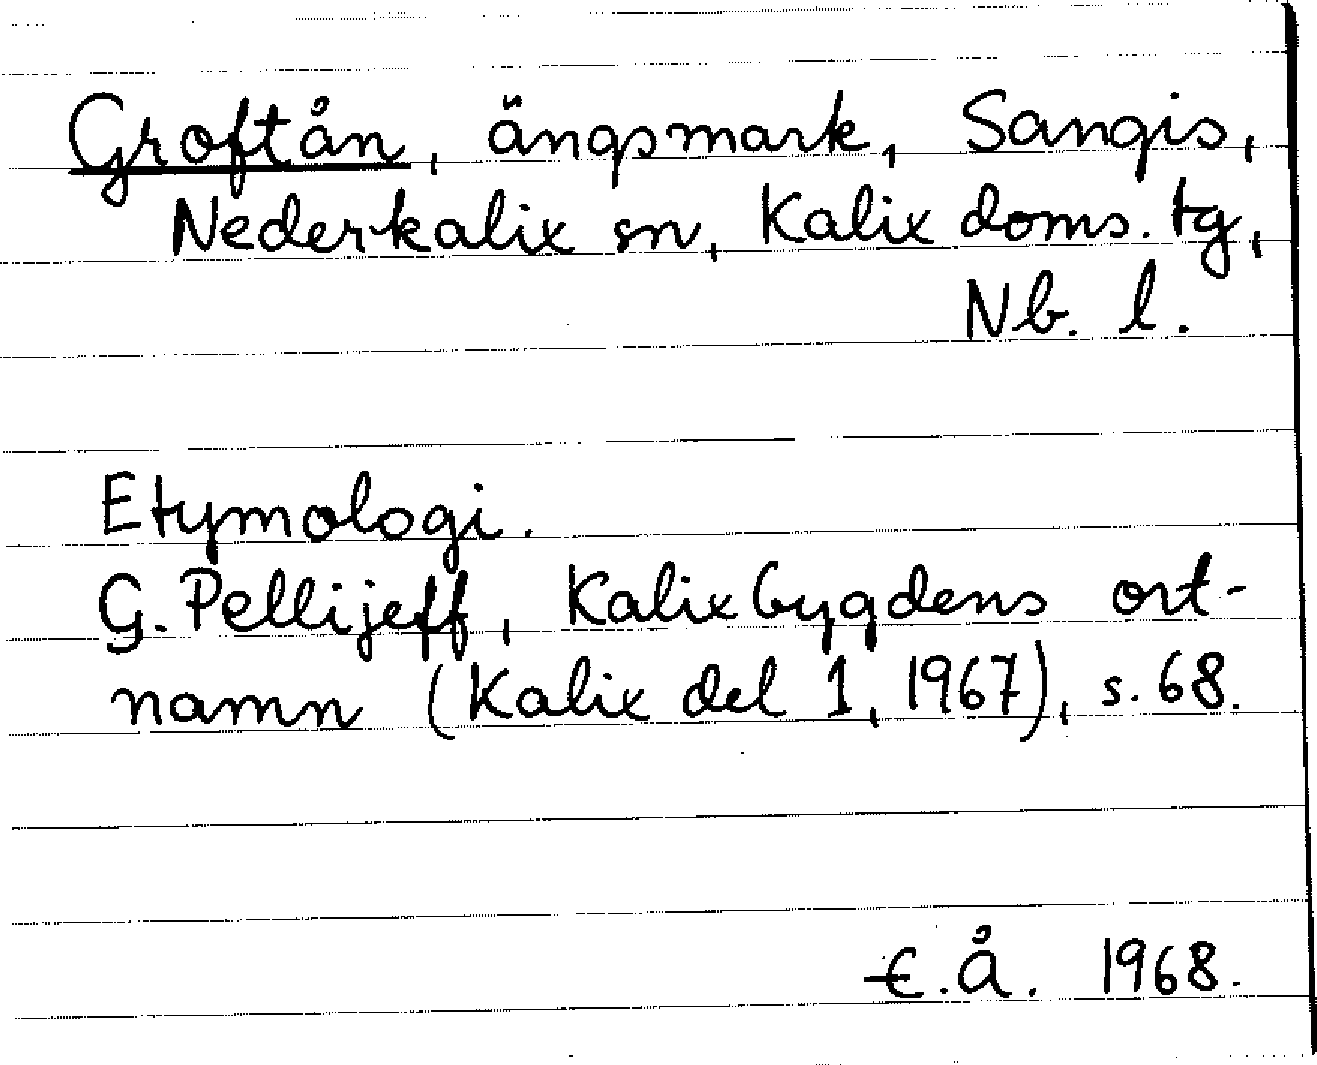 Groftån, ängsmark, Sangis,
Nederkalix sn, Kalix doms. tg,
Nb. l.
Etymologi.
G. Pellijeff, Kalixbygdens ort-
namn (Kalix del 1, 1967), s. 68.
E.Å. 1968.